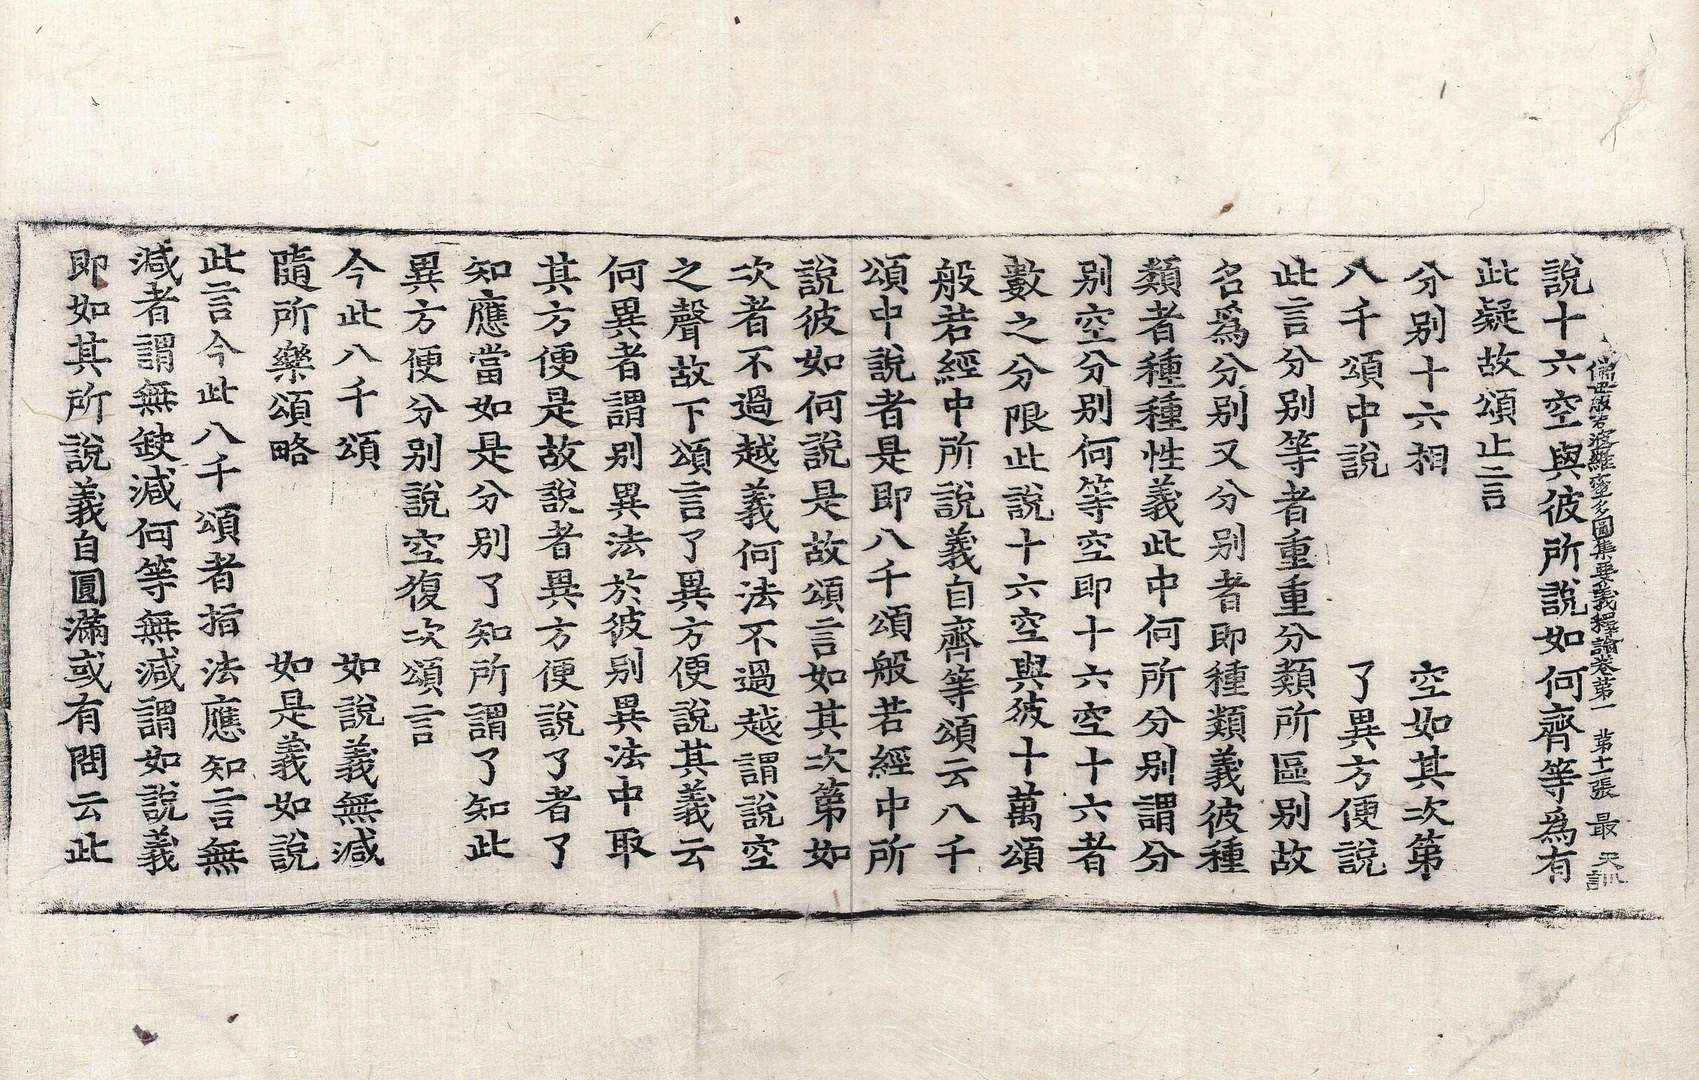 佛母般若波羅蜜多圓集要義釋論卷第一　第十一張　最　天訓
說十六空與彼所說如何齊等爲有
此疑故頌止言
分別十六相　空如其次第
八千頌中說　了異方便說
此言分別等者重重分類所區別故
名爲分別又分別者即種類義彼種
類者種種性義此中何所分別謂分
別空分別何等空即十六空十六者
數之分限此說十六空與彼十萬頌
般若經中所說義自齊等頌云八千
頌中說者是即八千頌般若經中所
說彼如何說是故頌言如其次第如
次者不過越義何法不過越謂說空
之聲故下頌言了異方便說其義云
何異者謂別異法於彼別異法中取
其方便是故說者異方便說了者了
知應當如是分別了知所謂了知此
異方便分別說空復次頌言
今此八千頌　如說義無減
隨所樂頌略　如是義如說
此言今此八千頌者指法應知言無
減者謂無缺減何等無減謂如說義
即如其所說義自圓滿或有問云此